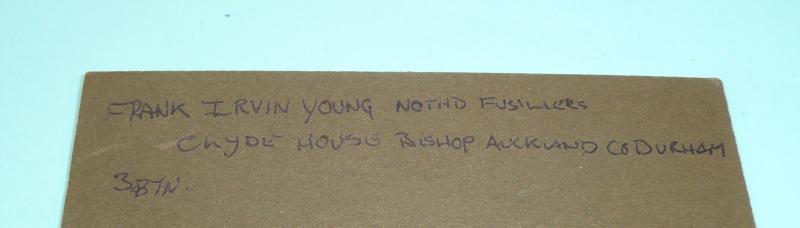 FRANK IRVIN YOUNG NOTHD FUSILLERS
CLYDE HOUSE BISHOP AUCKLAND CO DURHAM
3BTN.